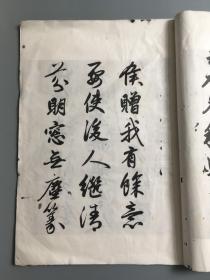 侯贈我有餘意
要使後人繼清
芬明窓无塵篆